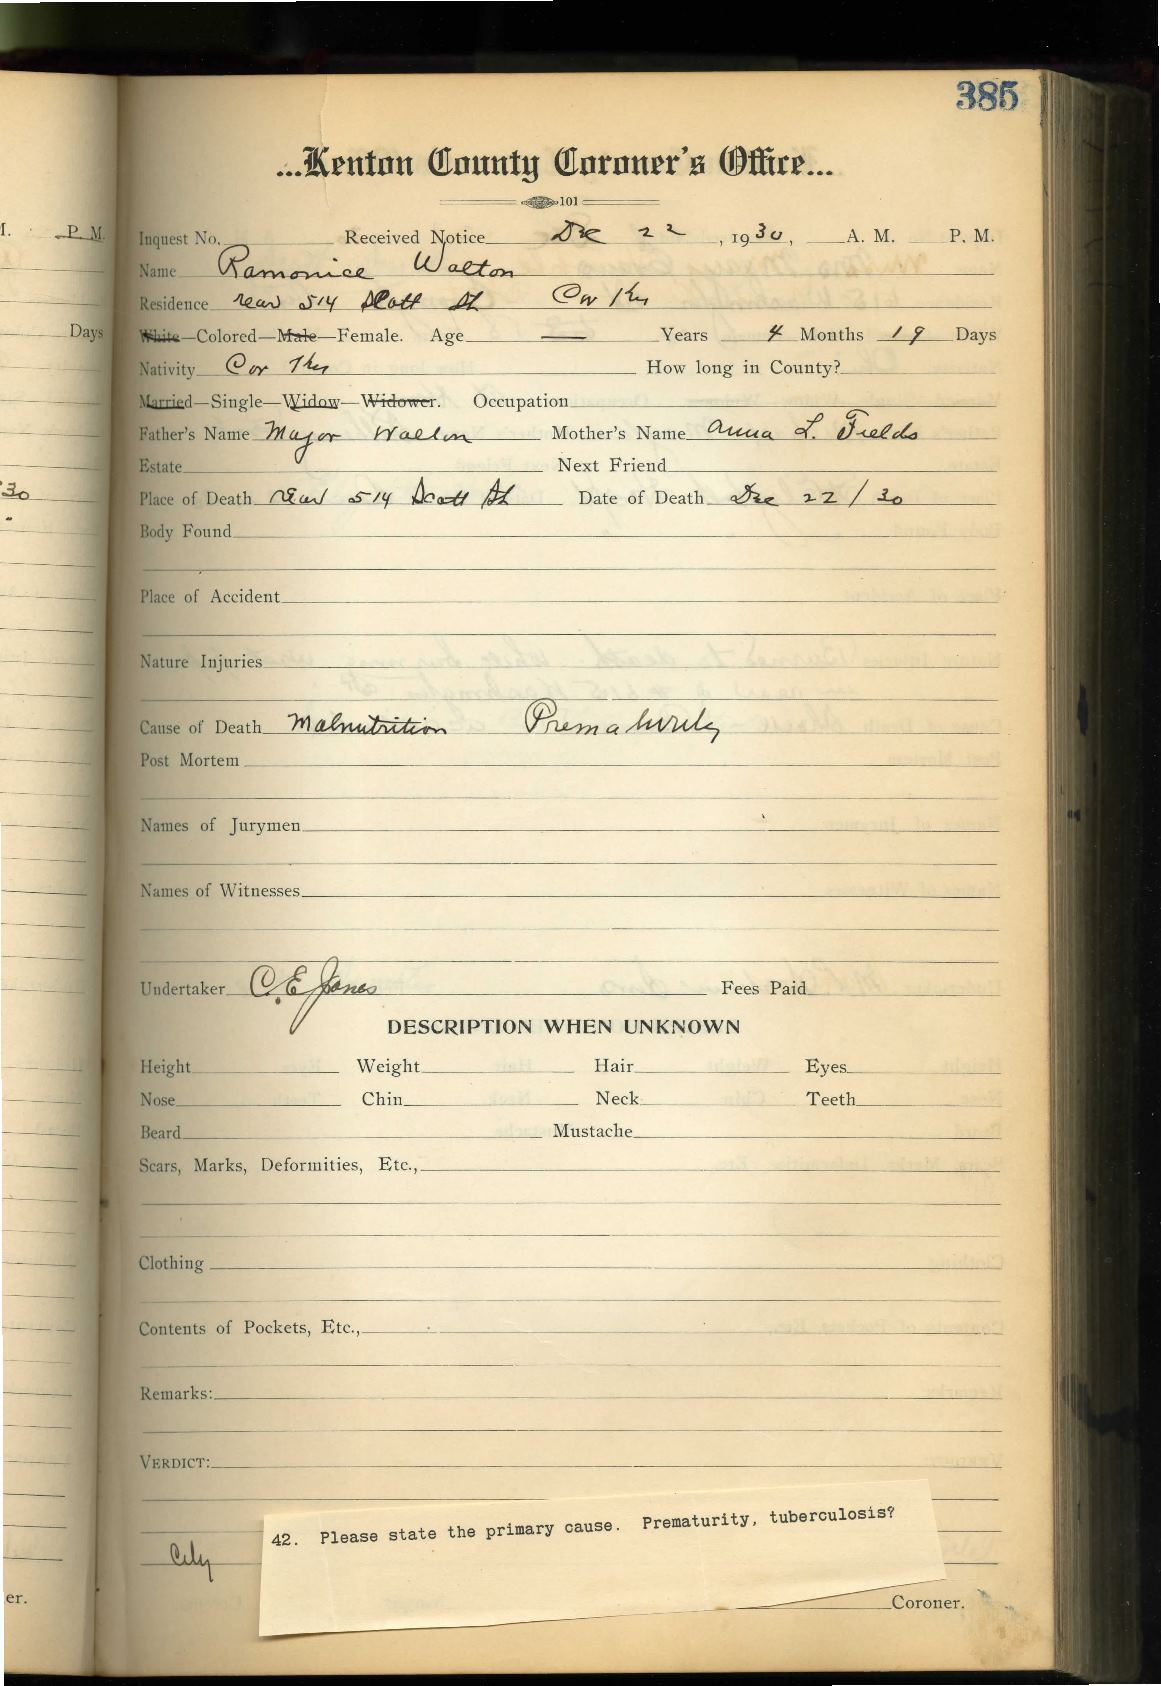 385
...Kenton County Coroner's Office...
101
Inquest No. Received Notice Dec 22, 1930, A. M. P. M.
Name Ramonice Walton
Residence rear 514 Scott St Cov Ky
White—Colored—Male—Female. Age — Years 4 Months 19 Days
Nativity Cov Ky How long in County?
Married—Single—Widow—Widower. Occupation
Father's Name Major Walton Mother's Name Anna L. Fields
Estate Next Friend
Place of Death rear 514 Scott St Date of Death Dec 22/30
Body Found
Place of Accident
Nature Injuries
Cause of Death Malnutrition Prematurity
Post Mortem
Names of Jurymen
Names of Witnesses
Undertaker C. E. Jones Fees Paid
DESCRIPTION WHEN UNKNOWN
Height Weight Hair Eyes
Nose Chin Neck Teeth
Beard Mustache
Scars, Marks, Deformities, Etc.,
Clothing
Contents of Pockets, Etc.,
Remarks:
VERDICT:
42. Please state the primary cause. Prematurity, tuberculosis?
City
Coroner.
P. M.
Days
30
er.